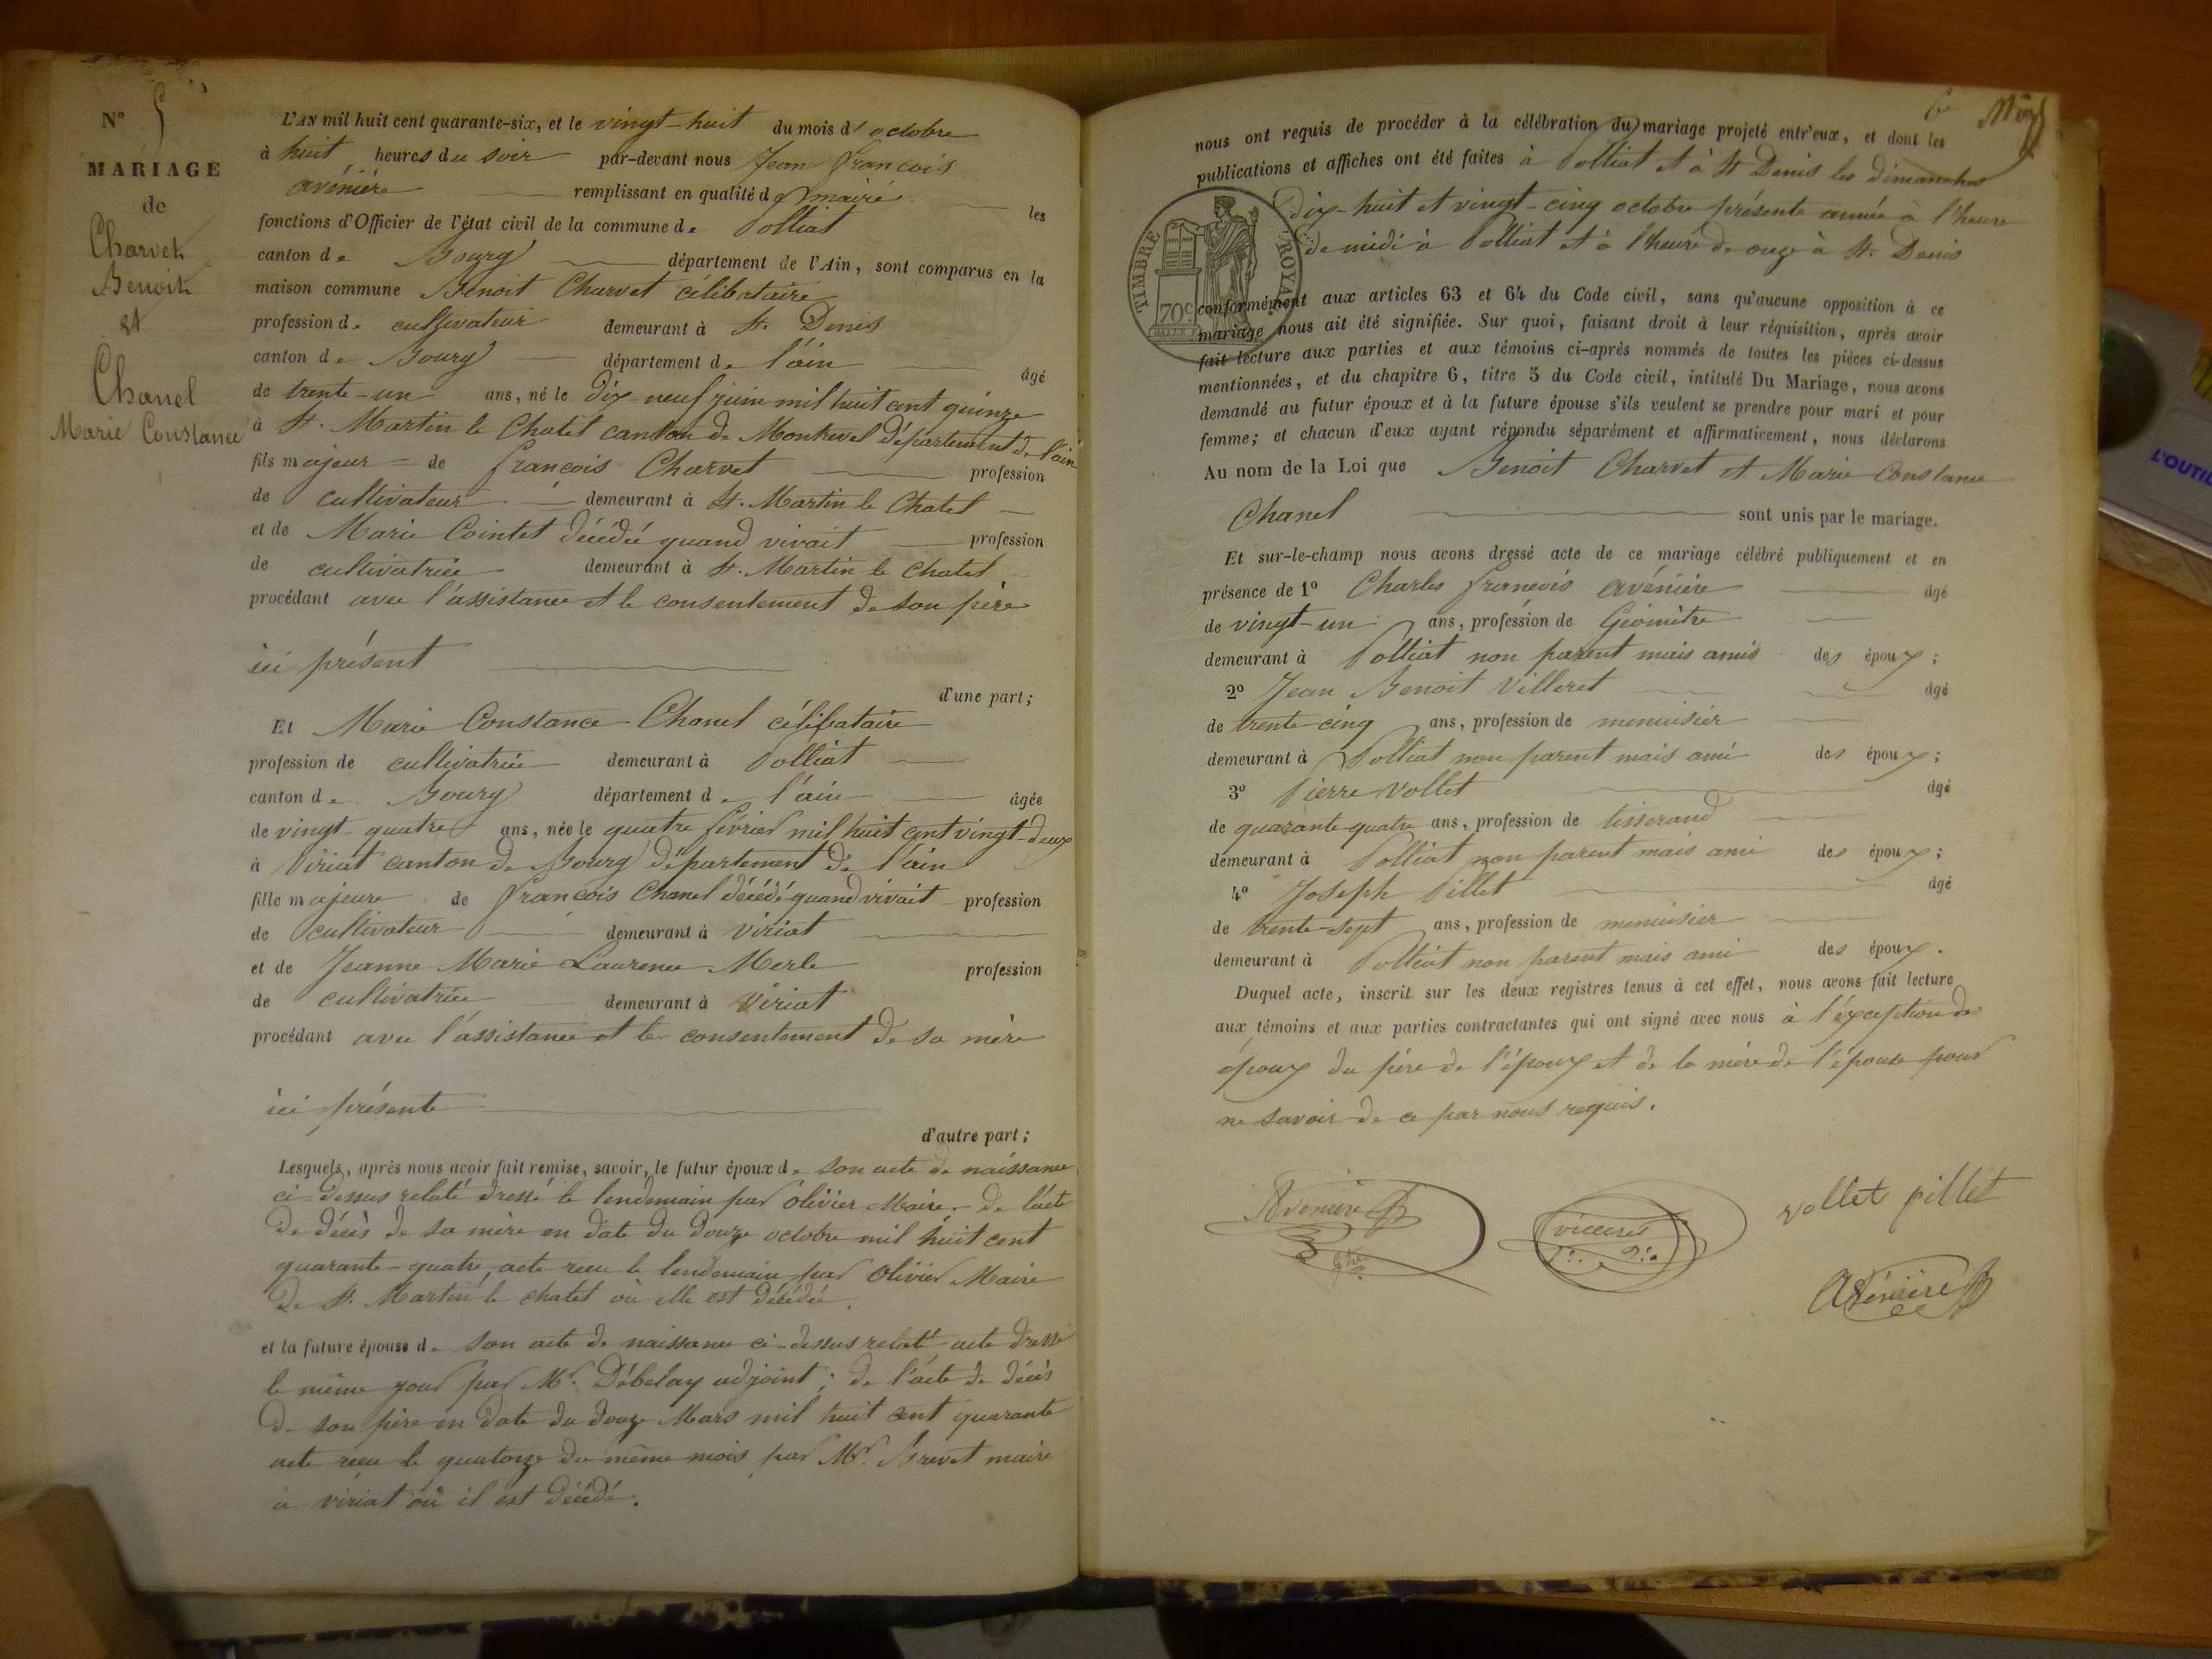 N° 5
MARIAGE
de
Charvet
Benoit
et
Chanel
Marie Constance
L'AN mil huit cent quarante-six, et le vingt-huit du mois d' octobre
à huit heures du soir par-devant nous Jean François
avénière remplissant en qualité de maire les
fonctions d'Officier de l'état civil de la commune de Polliat
canton de Bourg département de l'Ain, sont comparus en la
maison commune Benoit Charvet célibataire
profession de cultivateur demeurant à St. Denis
canton de Bourg département de l'ain âgé
de trente-un ans, né le dix-neuf juin mil huit cent quinze
à St. Martin le Chatel canton de Montrevel département de l'ain
fils majeur de françois Charvet profession
de cultivateur demeurant à St. Martin le Chatel
et de Marie Cointet décédée quand vivait profession
de cultivatrice demeurant à St. Martin le Chatel
procédant avec l'assistance et le consentement de son père
ici présent
d'une part;
Et Marie Constance Chanel célibataire
profession de cultivatrice demeurant à Polliat
canton de Bourg département de l'ain âgée
de vingt-quatre ans, née le quatre février mil huit cent vingt-deux
à Viriat canton de Bourg département de l'ain
fille majeure de françois Chanel décédé quand vivait profession
de cultivateur demeurant à Viriat
et de Jeanne Marie Laurence Merle profession
de cultivatrice demeurant à Viriat
procédant avec l'assistance et le consentement de sa mère
ici présente
d'autre part;
Lesquels, après nous avoir fait remise, savoir, le futur époux de son acte de naissance
ci-dessus relaté dressé le lendemain par Olivier Maire, de l'acte
de décès de sa mère en date du douze octobre mil huit cent
quarante-quatre acte reçu le lendemain par Olivier Maire
de St. Martin le chatel où elle est décédée.
et la future épouse de son acte de naissance ci-dessus relaté acte dressé
le même jour par Mr. Débelay adjoint; de l'acte de décès
de son père en date du douze Mars mil huit cent quarante
acte reçu le quatorze du même mois par Mr. Brevet maire
à viriat où il est décédé.
6
nous ont requis de procéder à la célébration du mariage projeté entr'eux, et dont les
publications et affiches ont été faites à Polliat et à St Denis les dimanches
dix-huit et vingt-cinq octobre présente année à l'heure
de midi à Polliat et à l'heure de onze à St. Denis
TIMBRE ROYAL
70c
conformément aux articles 63 et 64 du Code civil, sans qu'aucune opposition à ce
mariage nous ait été signifiée. Sur quoi, faisant droit à leur réquisition, après avoir
fait lecture aux parties et aux témoins ci-après nommés de toutes les pièces ci-dessus
mentionnées, et du chapitre 6, titre 5 du Code civil, intitulé Du Mariage, nous avons
demandé au futur époux et à la future épouse s'ils veulent se prendre pour mari et pour
femme; et chacun d'eux ayant répondu séparément et affirmativement, nous déclarons
Au nom de la Loi que Benoit Charvet et Marie Constance
Chanel sont unis par le mariage.
Et sur-le-champ nous avons dressé acte de ce mariage célébré publiquement et en
présence de 1° Charles françois avénière âgé
de vingt-un ans, profession de Géomètre
demeurant à Polliat non parent mais amis des époux;
2° Jean Benoit Villeret âgé
de trente-cinq ans, profession de menuisier
demeurant à Polliat non parent mais ami des époux;
3° Pierre Vollet âgé
de quarante-quatre ans, profession de tisserand
demeurant à Polliat non parent mais ami des époux;
4° Joseph Pillet âgé
de trente-sept ans, profession de menuisier
demeurant à Polliat non parent mais ami des époux.
Duquel acte, inscrit sur les deux registres tenus à cet effet, nous avons fait lecture
aux témoins et aux parties contractantes qui ont signé avec nous à l'exception des
époux du père de l'époux et de la mère de l'épouse pour
ne savoir de ce par nous requis.
Avénière
vollet pillet
Avénière
L'OUTIL